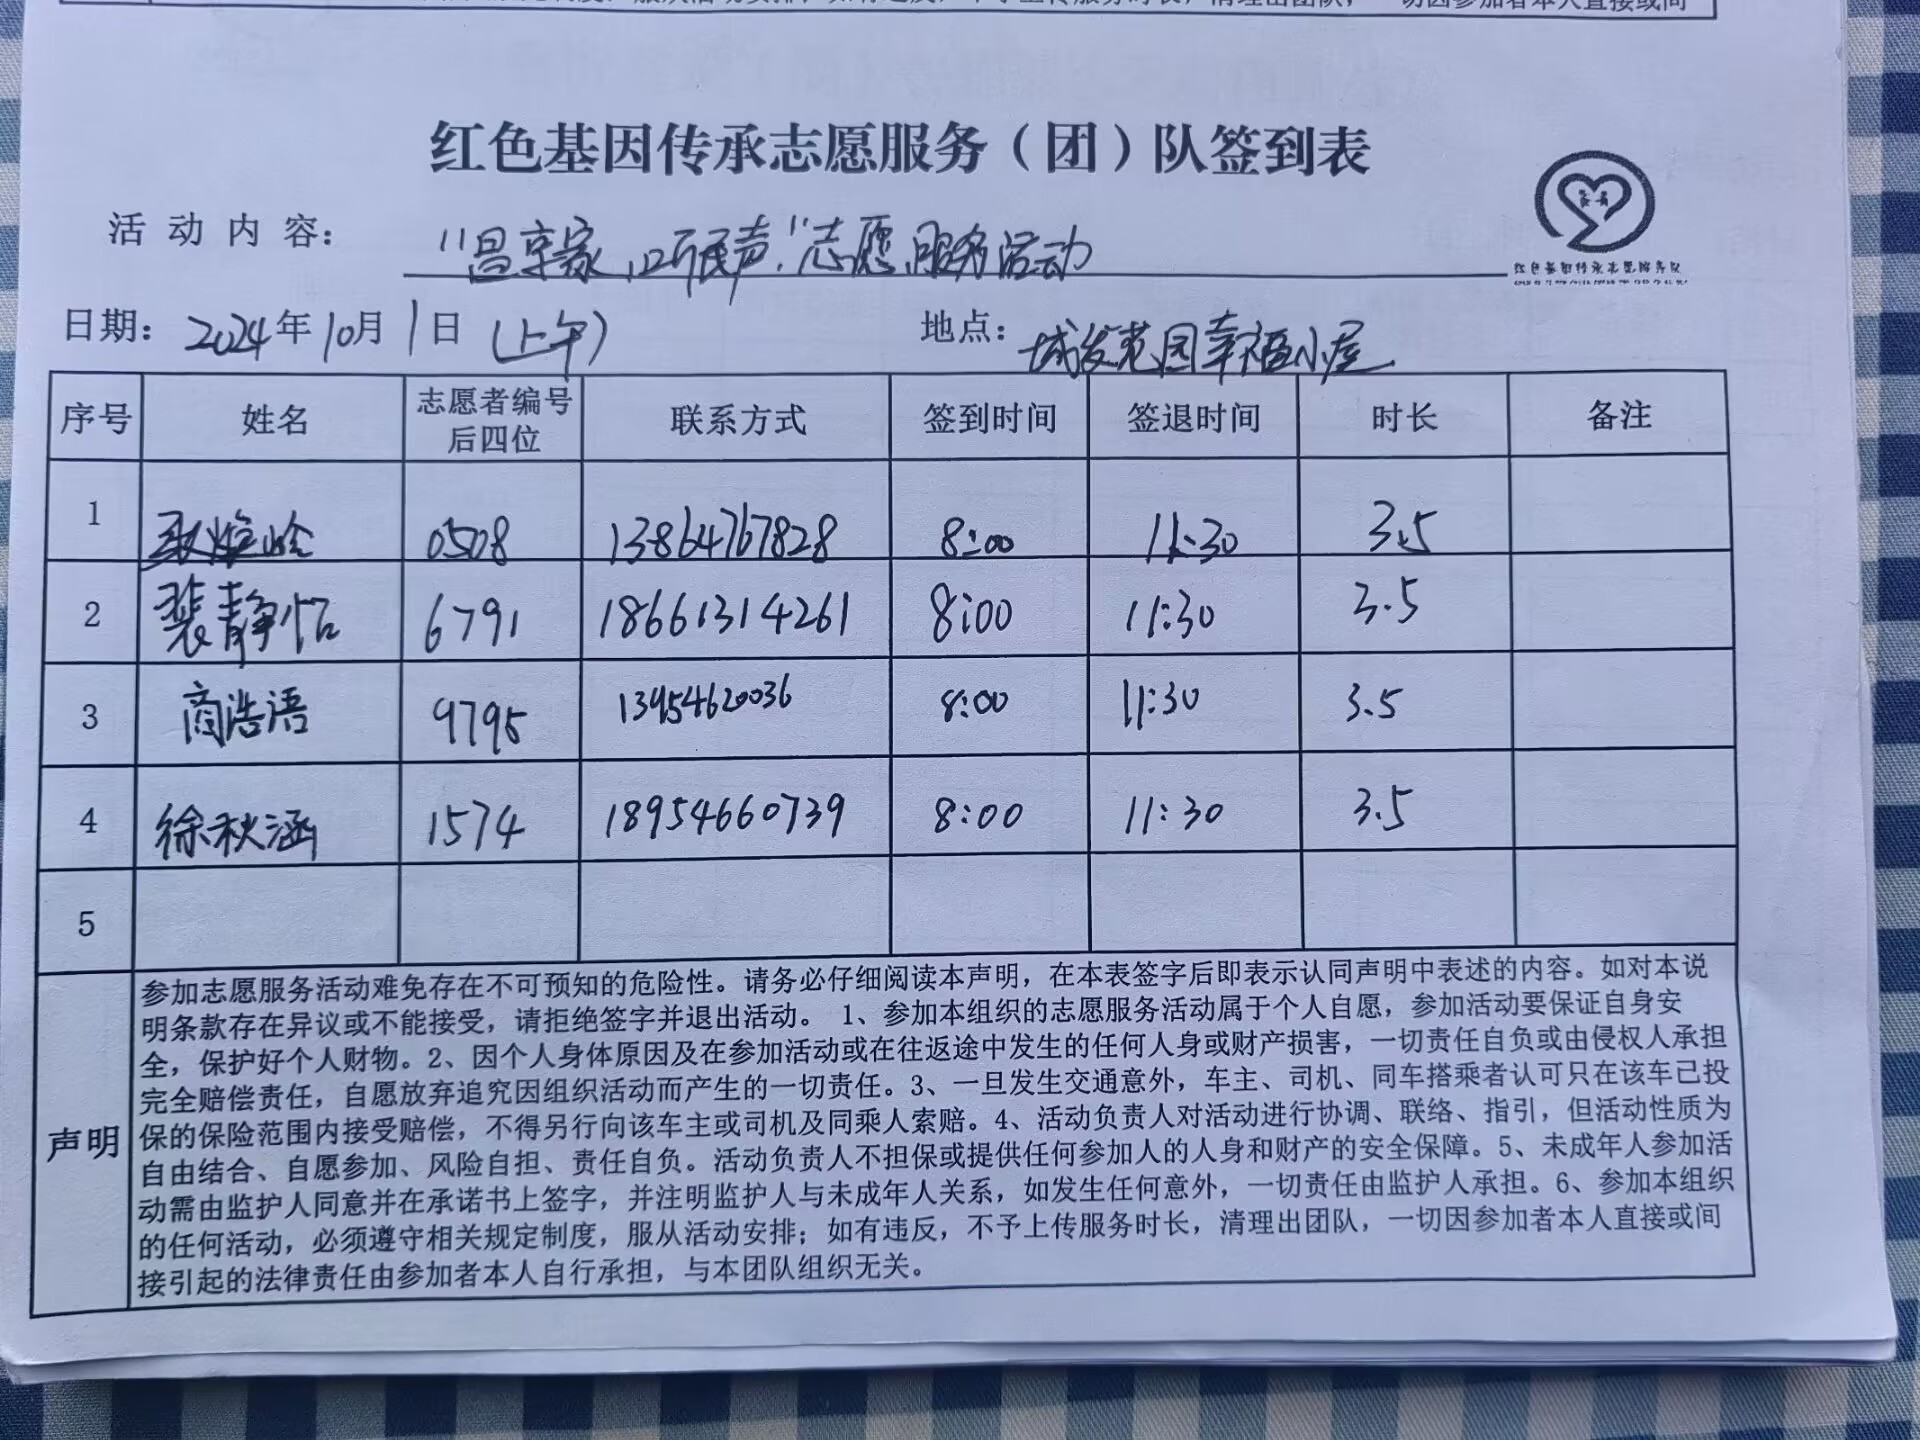 一切因参加者本人直接或间
红色基因传承志愿服务（团）队签到表
活动内容： "昌享家，听民声"志愿服务活动
红色基因传承志愿服务队
日期： 2024年10月1日（上午） 地点： 城发花园幸福小屋
序号 姓名 志愿者编号后四位 联系方式 签到时间 签退时间 时长 备注
1 0508 13864767828 8:00 11:30 3.5
2 裴静怡 6791 18661314261 8:00 11:30 3.5
3 商浩语 9795 13954620036 8:00 11:30 3.5
4 徐秋涵 1574 18954660739 8:00 11:30 3.5
5
声明
参加志愿服务活动难免存在不可预知的危险性。请务必仔细阅读本声明，在本表签字后即表示认同声明中表述的内容。如对本说
明条款存在异议或不能接受，请拒绝签字并退出活动。 1、参加本组织的志愿服务活动属于个人自愿，参加活动要保证自身安
全，保护好个人财物。2、因个人身体原因及在参加活动或在往返途中发生的任何人身或财产损害，一切责任自负或由侵权人承担
完全赔偿责任，自愿放弃追究因组织活动而产生的一切责任。3、一旦发生交通意外，车主、司机、同车搭乘者认可只在该车已投
保的保险范围内接受赔偿，不得另行向该车主或司机及同乘人索赔。4、活动负责人对活动进行协调、联络、指引，但活动性质为
自由结合、自愿参加、风险自担、责任自负。活动负责人不担保或提供任何参加人的人身和财产的安全保障。5、未成年人参加活
动需由监护人同意并在承诺书上签字，并注明监护人与未成年人关系，如发生任何意外，一切责任由监护人承担。6、参加本组织
的任何活动，必须遵守相关规定制度，服从活动安排；如有违反，不予上传服务时长，清理出团队，一切因参加者本人直接或间
接引起的法律责任由参加者本人自行承担，与本团队组织无关。